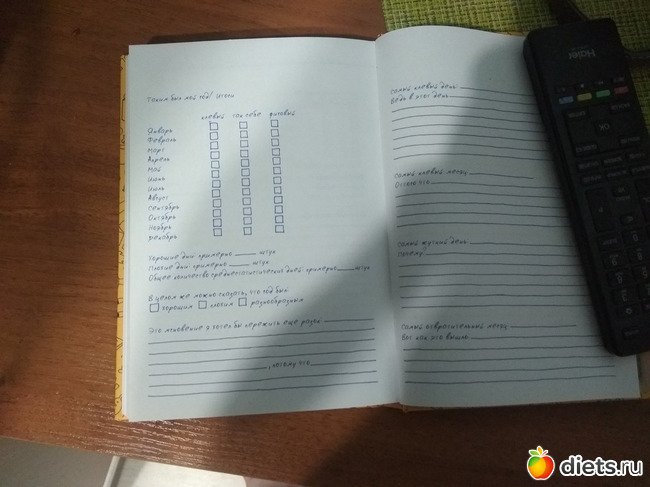 Таким был мой год! Итоги
клевый так себе фиговый
Январь
Февраль
Март
Апрель
Май
Июнь
Июль
Август
Сентябрь
Октябрь
Ноябрь
Декабрь
Хорошие дни примерно штук
Плохие дни примерно штук
Общее количество среднестатистических дней примерно штук
В целом же можно сказать, что год был
хорошим плохим разнообразным
Это мгновение я хотел бы пережить еще разок
, потому что
Самый клевый день
Ведь в этот день
Самый клевый месяц
Оттого что
Самый жуткий день
Почему?
Самый отвратительный месяц
Вот как это вышло
Haier
OK
diets.ru